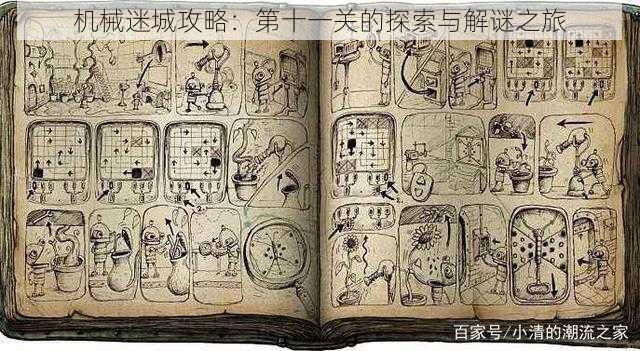 机械迷城攻略：第十一关的探索与解谜之旅
百家号/小清的潮流之家